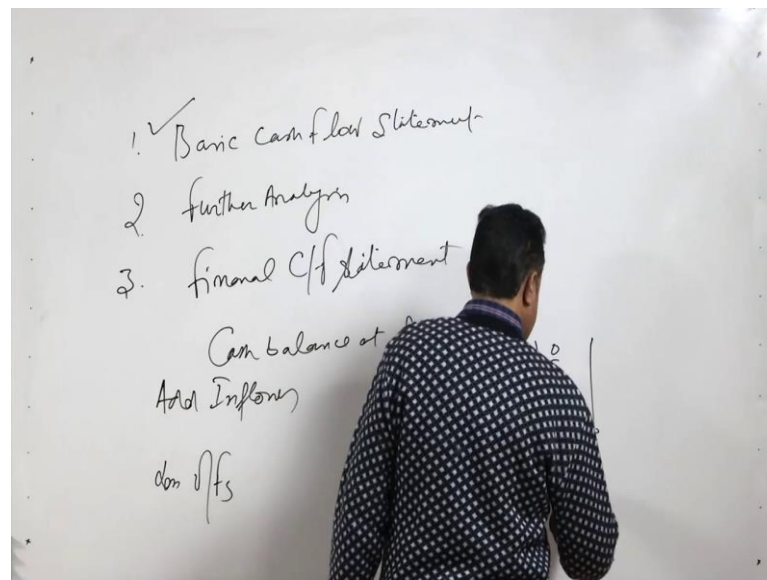 1. ✓ Basic Cash flow Statement
2. further Analysis
3. finanal C/f statement
Cash balance at
Add Inflows
O/fs